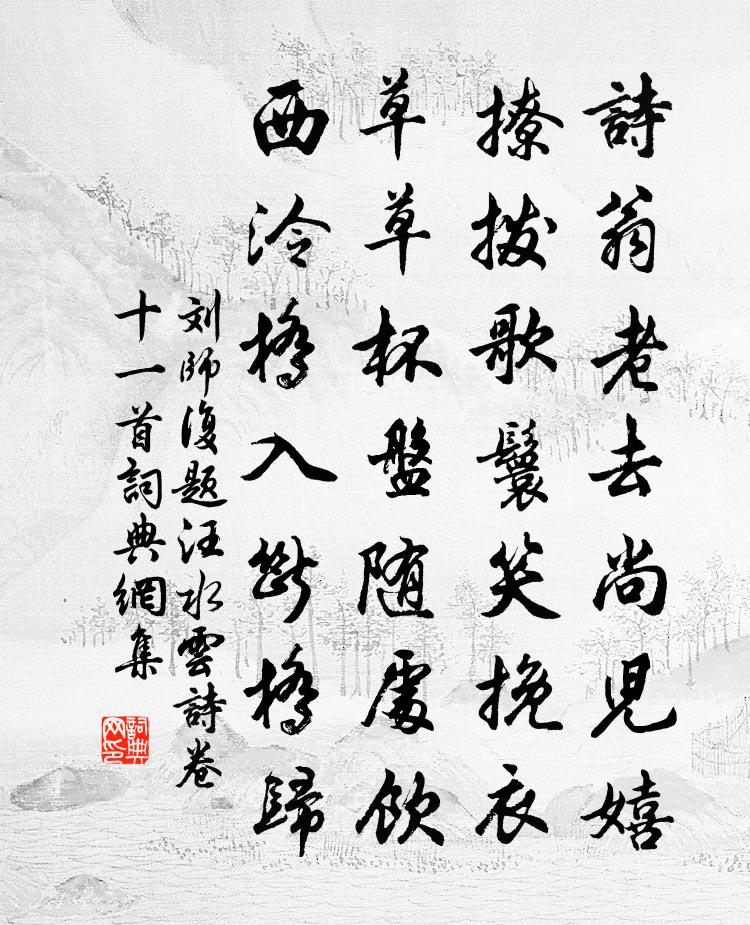 詩翁老去尚児嬉
撩拨歌鬟笑挽衣
草草杯盤随處飲
西泠橋入断橋歸
刘師復題汪水雲詩卷
十一首詞典網集
詞典网印